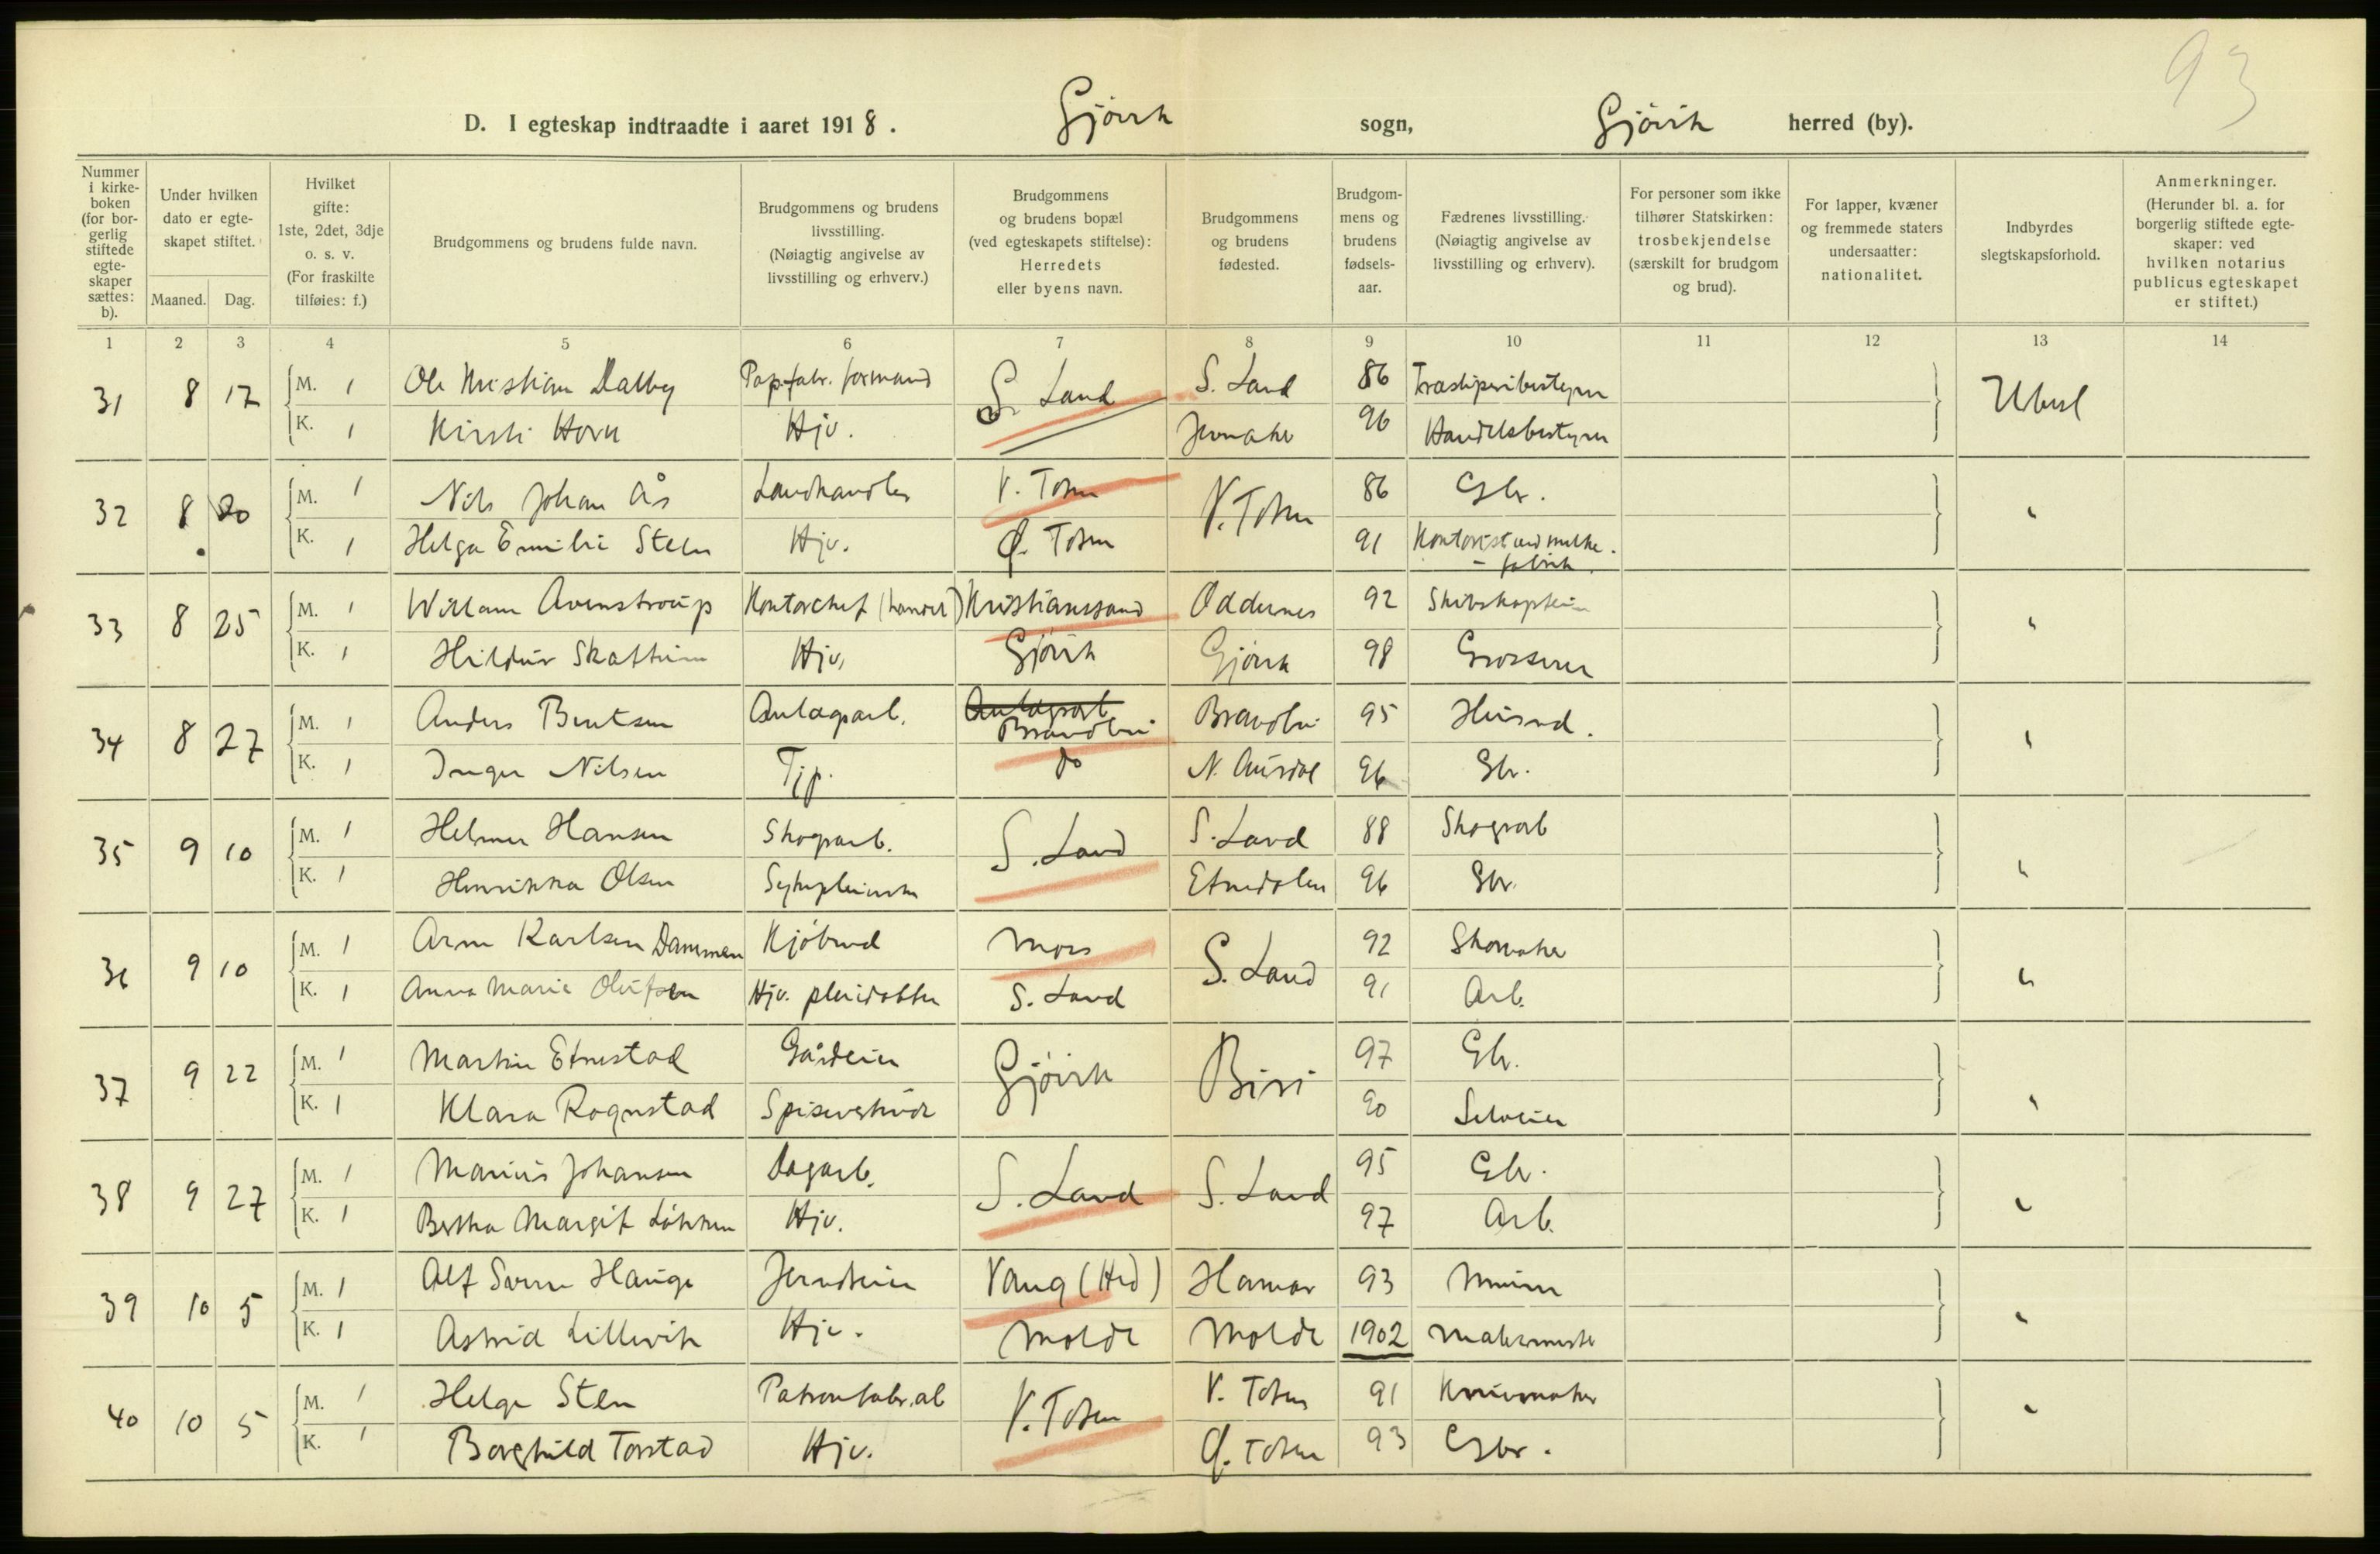 93
D. I egteskap indtraadte i aaret 1918. Gjøvik sogn, Gjøvik herred (by).
Nummer i kirke- boken (for bor- gerlig stiftede egte- skaper sættes: b).
Under hvilken dato er egte- skapet stiftet.
Maaned. Dag.
Hvilket gifte: 1ste, 2det, 3dje o. s. v. (For fraskilte tilføies: f.)
Brudgommens og brudens fulde navn.
Brudgommens og brudens livsstilling. (Nøiagtig angivelse av livsstilling og erhverv.)
Brudgommens og brudens bopæl (ved egteskapets stiftelse): Herredets eller byens navn.
Brudgommens og brudens fødested.
Brudgom- mens og brudens fødsels- aar.
Fædrenes livsstilling. (Nøiagtig angivelse av livsstilling og erhverv).
For personer som ikke tilhører Statskirken: trosbekjendelse (særskilt for brudgom og brud).
For lapper, kvæner og fremmede staters undersaatter: nationalitet.
Indbyrdes slegtskapsforhold.
Anmerkninger. (Herunder bl. a. for borgerlig stiftede egte- skaper: ved hvilken notarius publicus egteskapet er stiftet.)
1 2 3 4 5 6 7 8 9 10 11 12 13 14
31 8 17 M. 1 Ole Kristian Dalby Papfabr. formand S. Land S. Land 86 Træsliperibestyrer Ubesl
K. 1 Kirsti Horn Hjv. Jevnaker 96 Handelsbestyrer
32 8 20 M. 1 Nils Johan Ås Landhandler V. Toten V. Toten 86 Gbr. "
K. 1 Helga Emilie Steen Hjv. Ø. Toten 91 Kontorist ved melke-
fabrik.
33 8 25 M. 1 Willam Avenstroup Kontorchef (handel) Kristianssand Oddernes 92 Skibskaptein "
K. 1 Hildur Skattum Hjv. Gjøvik Gjøvik 98 Grosserer
34 8 27 M. 1 Anders Bentsen Anlægsarb. Anlægsarb Brandbu Brandbu 95 Husmd. "
K. 1 Inger Nilsen Tjp. do N. Aurdal 96 Gbr.
35 9 10 M. 1 Helmer Hansen Skogsarb. S. Land S. Land 88 Skogsarb "
K. 1 Henrikka Olsen Sykepleierske Etnedalen 96 Gbr.
36 9 10 M. 1 Arne Karlsen Dammen Kjøbmd Moss S. Land 92 Skomaker "
K. 1 Anna Marie Olufsen Hjv. pleiedatter S. Land 91 Arb.
37 9 22 M. 1 Martin Etnestad Gårdeier Gjøvik Biri 97 Gbr. "
K. 1 Klara Rognstad Spisevertinde 90 Selveier
38 9 27 M. 1 Marius Johansen Dagarb. S. Land S. Land 95 Gbr. "
K. 1 Bertha Margit Løkken Hjv. 97 Arb.
39 10 5 M. 1 Alf Sverre Hauge Jerndreier Vang (Hed) Hamar 93 Murer "
K. 1 Astrid Lillevik Hjv. Molde Molde 1902 Malermester
40 10 5 M. 1 Helge Sten Patronfabr. ab V. Toten V. Toten 91 Knivmaker "
K. 1 Borghild Torstad Hjv. Ø. Toten 93 Gbr.